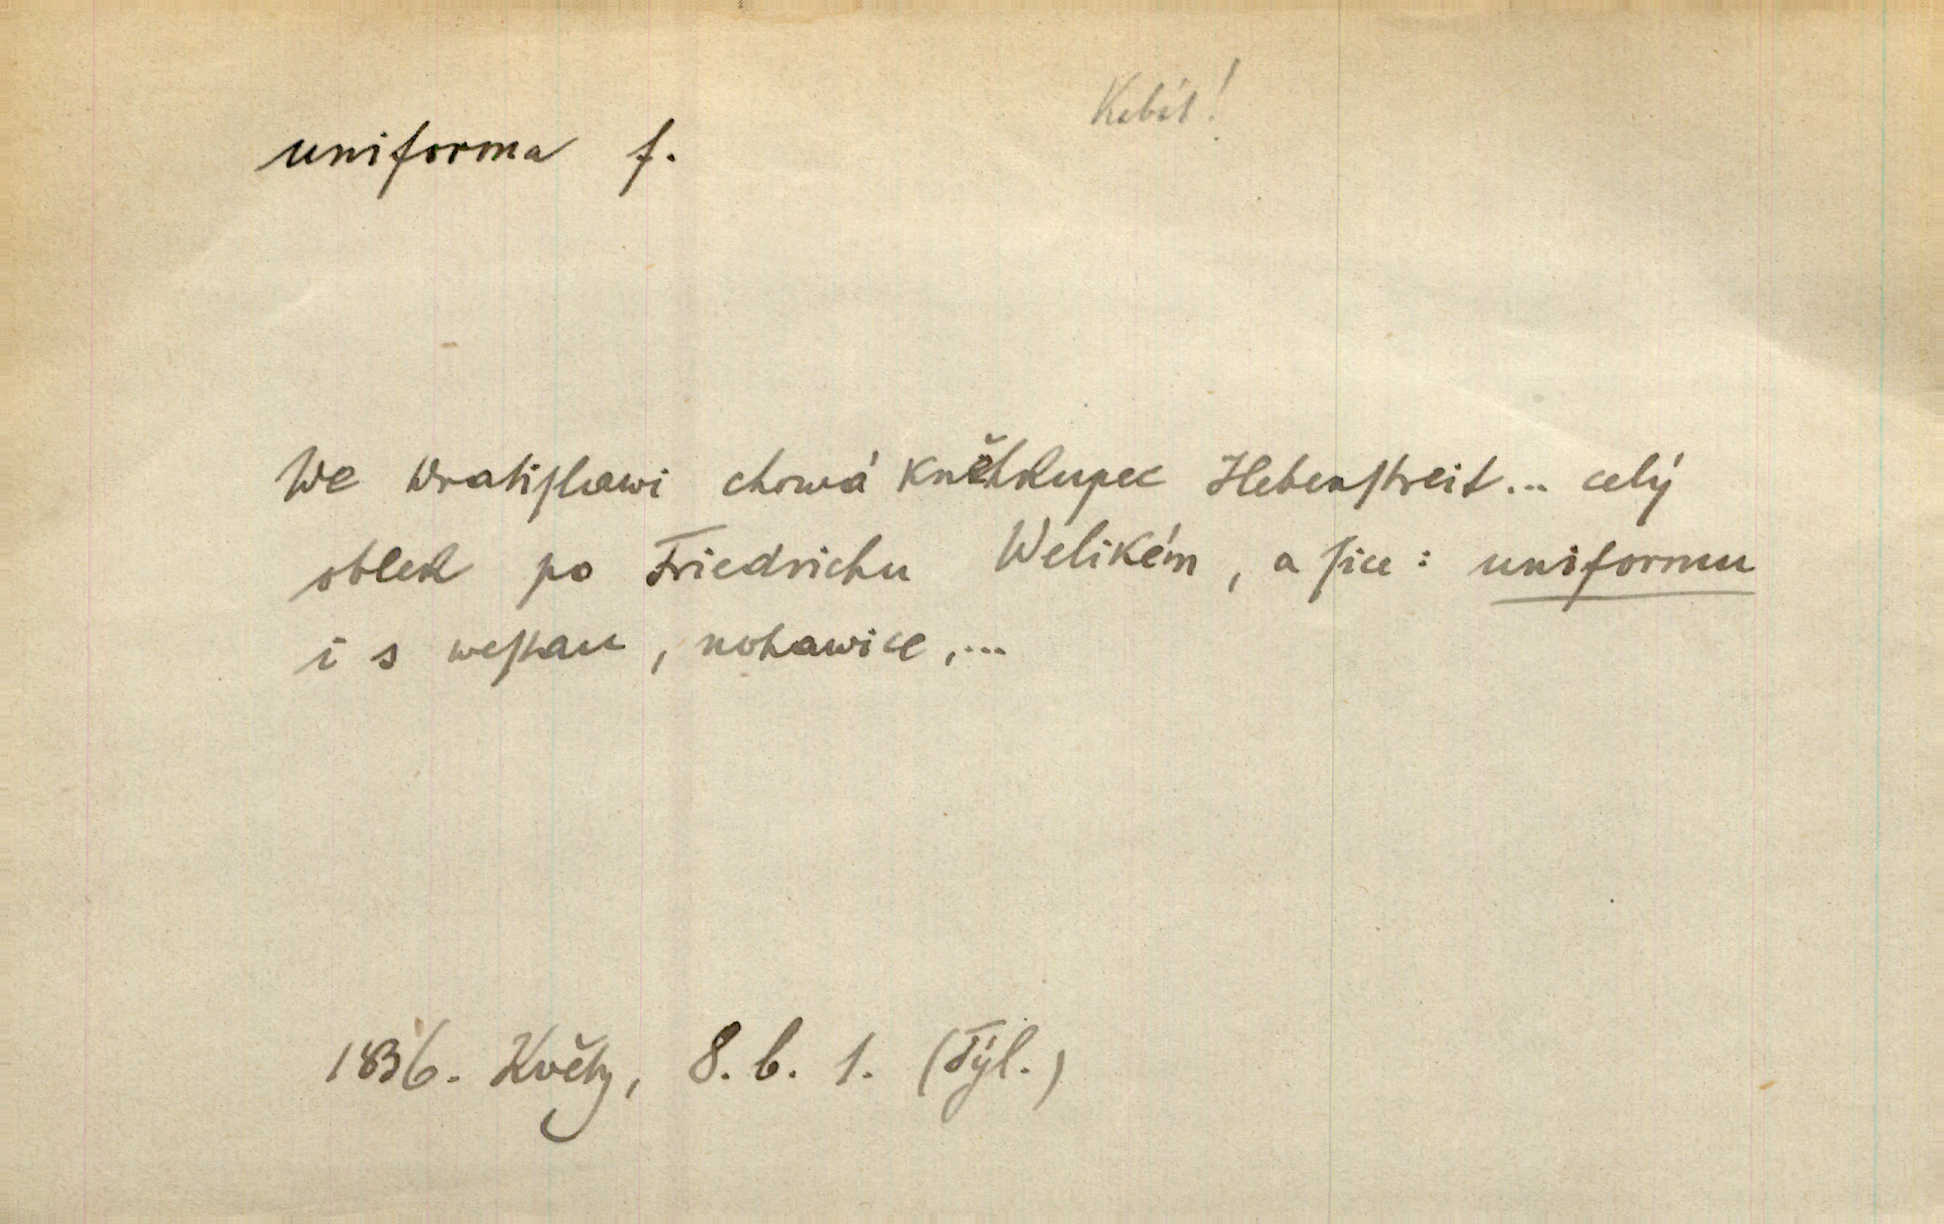 Kabát!
uniforma f.
We Wratiſlawi chowá kněhkupec Hebenſtreit... celý
oblek po Friedrichu Welikém, a ſice: uniformu
i s weſtau, nohawice,...
1836. Květy, 8. b. 1. (Tyl.)